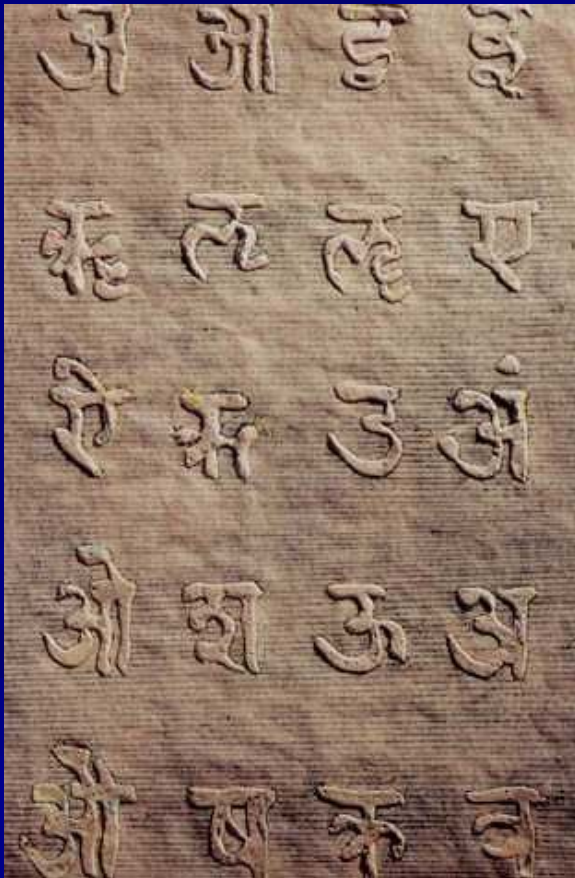 अ आ इ ई
ॠ ऌ ॡ ए
ऐ ऋ उ अं
ओ श ऊ अ
औ ष क